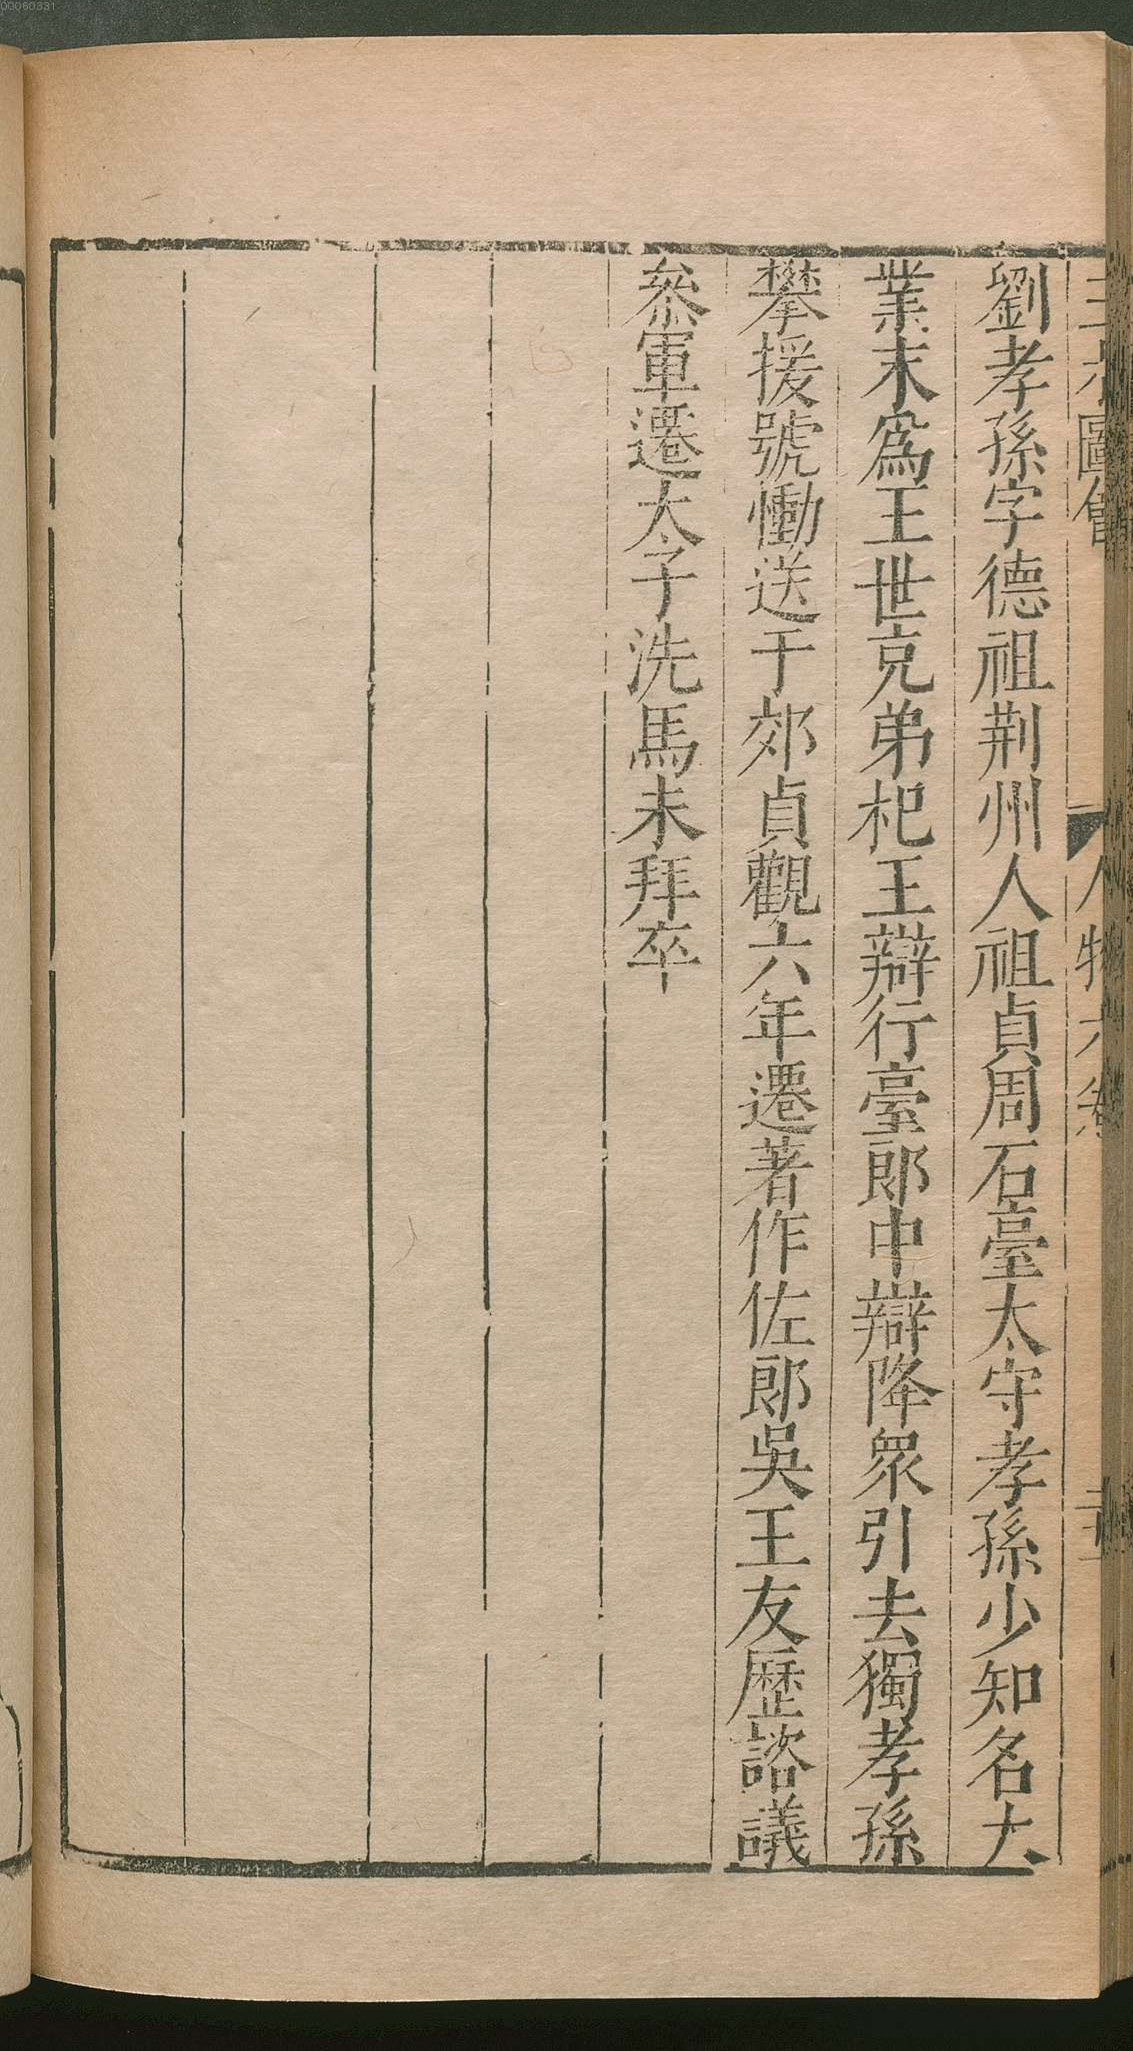 00060331
三才圖會 人物六卷
劉孝孫字德祖荆州人祖貞周石臺太守孝孫少知名大
業末爲王世充弟杞王辯行臺郎中辯降衆引去獨孝孫
攀援號慟送于郊貞觀六年遷著作佐郎吳王友歷諮議
叅軍遷太子洗馬未拜卒